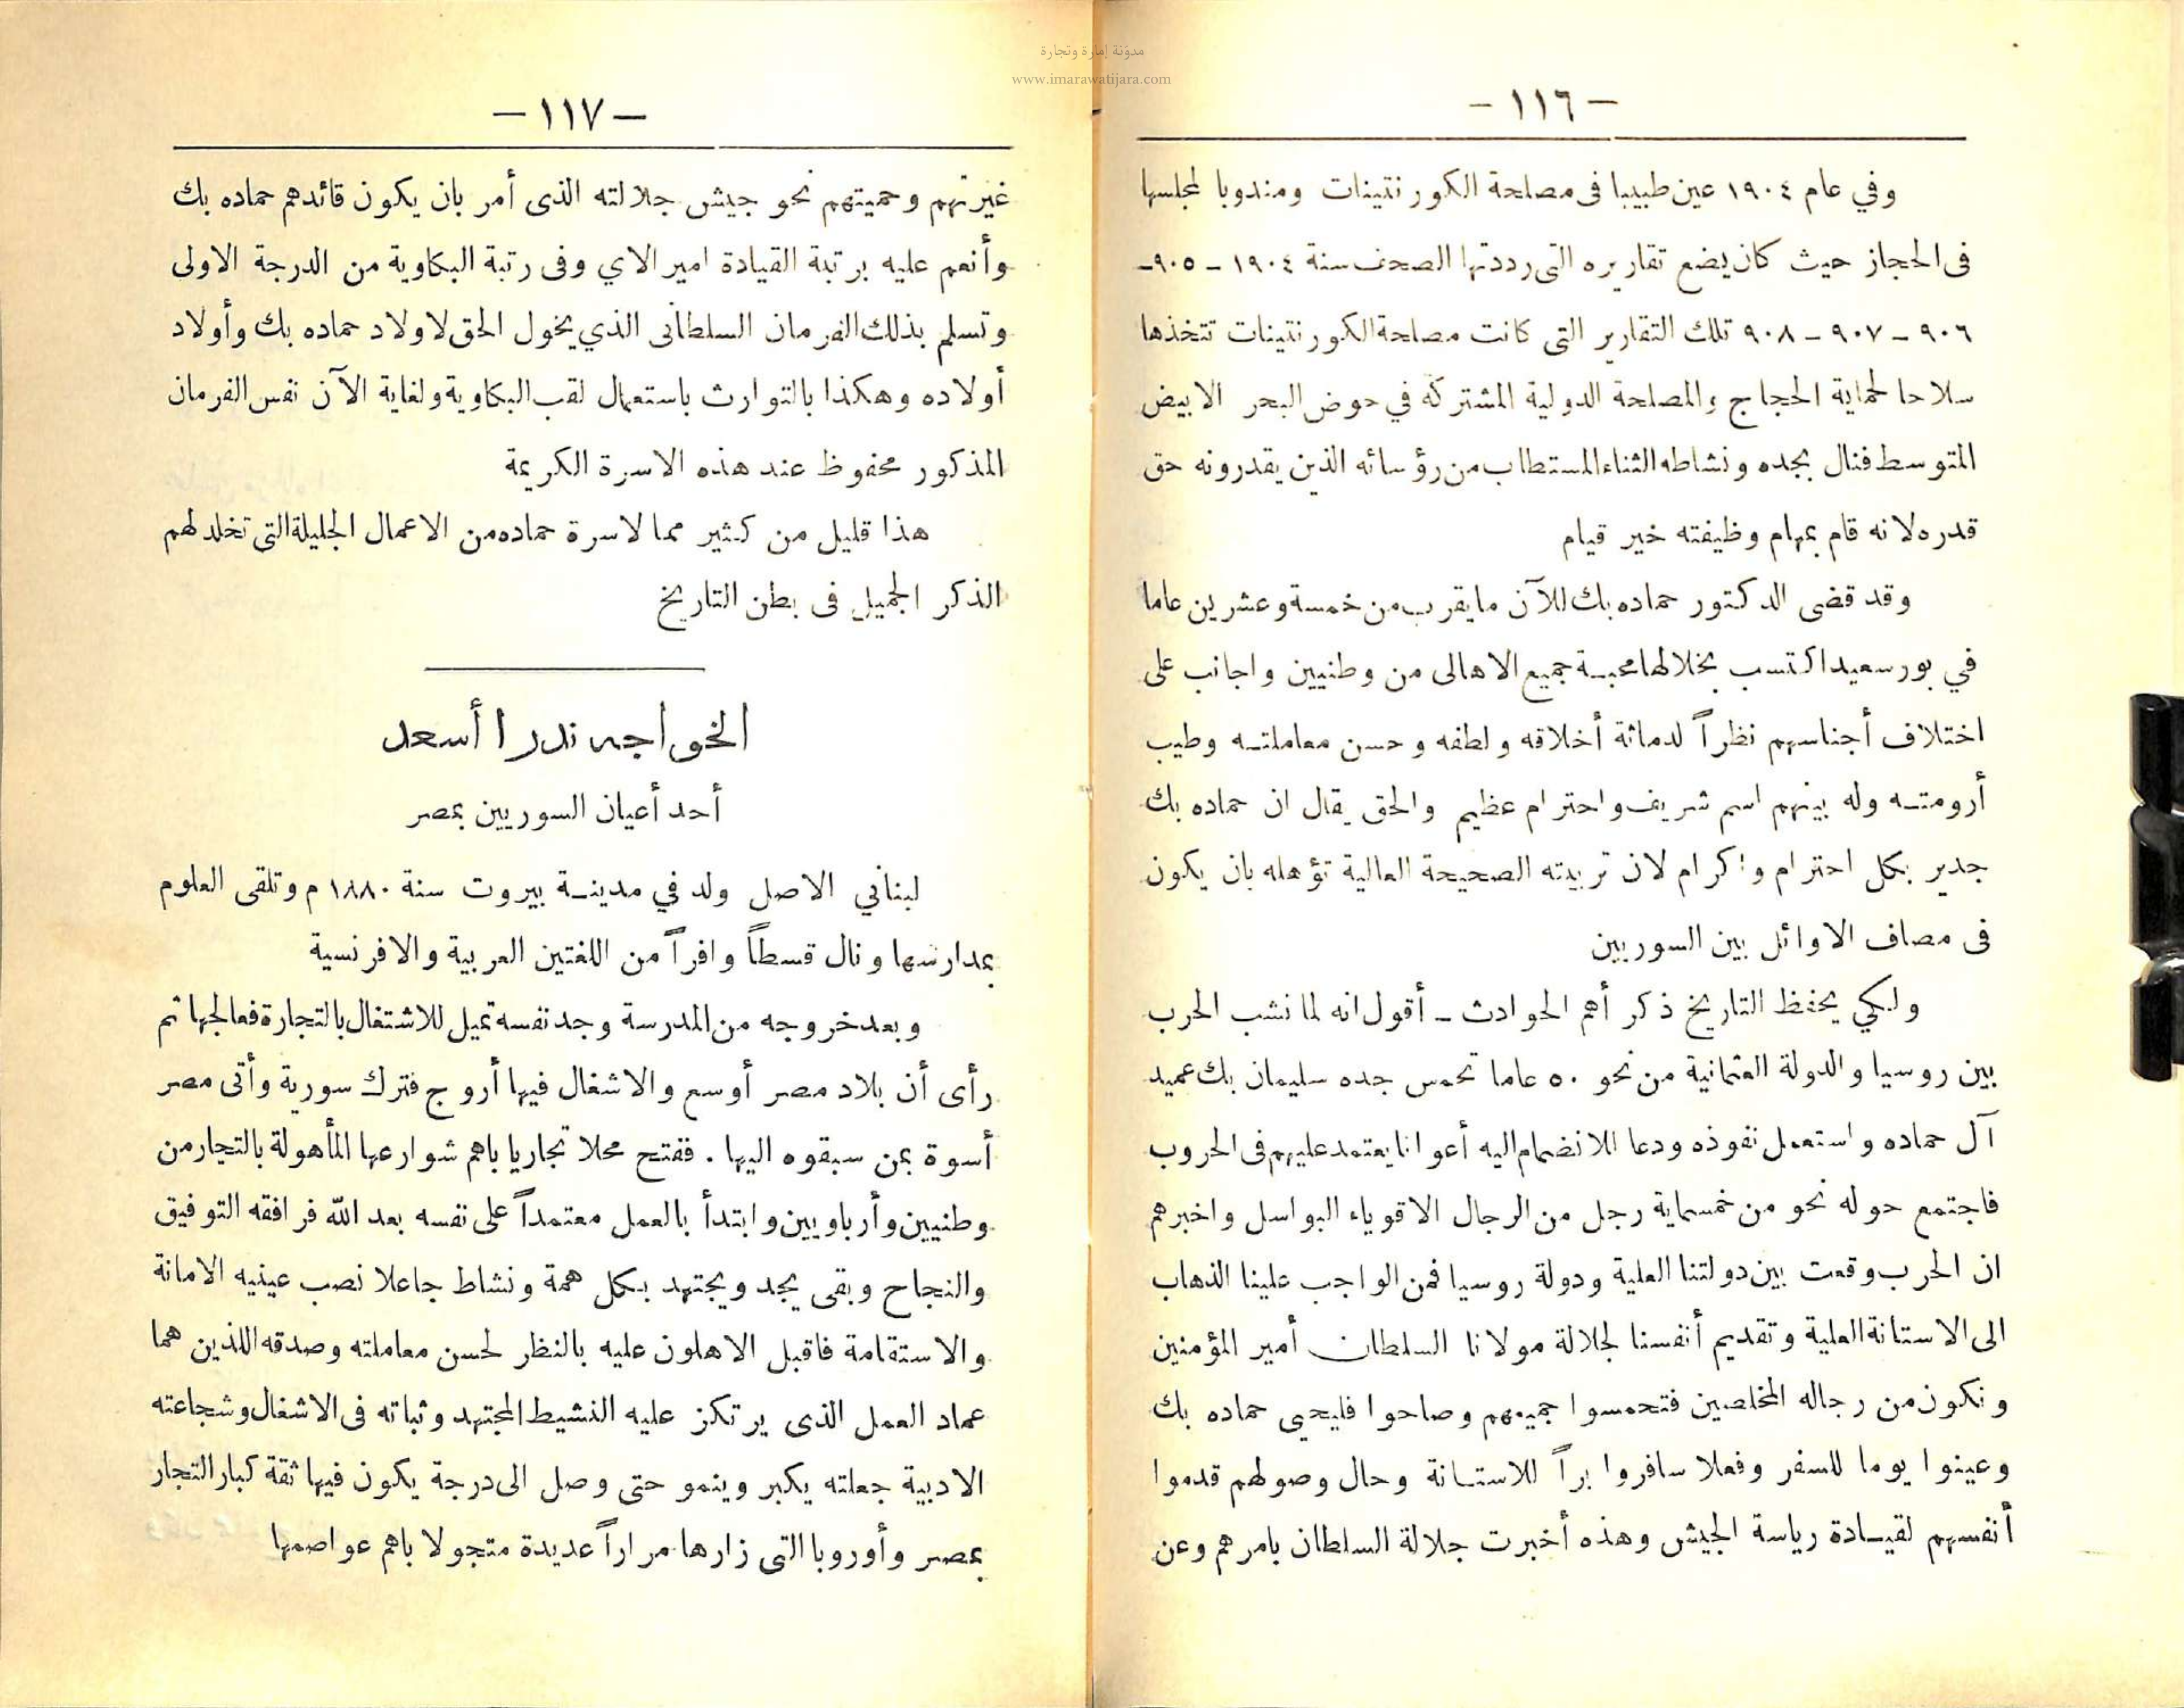 مدوّنة إمارة وتجارة
www.imarawatijara.com
— ١١٦ —
وفي عام ١٩٠٤ عين طبيبا فى مصلحة الكورنتينات ومندوبا لمجلسها
فى الحجاز حيث كان يضع تقاريره التى رددتها الصحف سنة ١٩٠٤ – ٩٠٥ –
٩٠٦ – ٩٠٧ – ٩٠٨ تلك التقارير التى كانت مصلحة الكورنتينات تتخذها
سلاحا لحماية الحجاج والمصلحة الدولية المشتركة في حوض البحر الابيض
المتوسط فنال بجده ونشاطه الثناء المستطاب من رؤسائه الذين يقدرونه حق
قدره لانه قام بمهام وظيفته خير قيام
وقد قضى الدكتور حماده بك للآن ما يقرب من خمسة وعشرين عاما
في بورسعيد اكتسب بخلالها محبة جميع الاهالى من وطنيين واجانب على
اختلاف أجناسهم نظراً لدماثة أخلاقه ولطفه وحسن معاملته وطيب
أرومته وله بينهم اسم شريف واحترام عظيم والحق يقال ان حماده بك
جدير بكل احترام واكرام لان تربيته الصحيحة العالية تؤهله بان يكون
فى مصاف الاوائل بين السوريين
ولكي يحفظ التاريخ ذكر أهم الحوادث – أقول انه لما نشب الحرب
بين روسيا والدولة العثمانية من نحو ٥٠ عاما تحمس جده سليمان بك عميد
آل حماده واستعمل نفوذه ودعا للانضمام اليه أعوانا يعتمد عليهم فى الحروب
فاجتمع حوله نحو من خمسماية رجل من الرجال الاقوياء البواسل واخبرهم
ان الحرب وقعت بين دولتنا العلية ودولة روسيا فمن الواجب علينا الذهاب
الى الاستانة العلية وتقديم أنفسنا لجلالة مولانا السلطان أمير المؤمنين
ونكون من رجاله المخلصين فتحمسوا جميعهم وصاحوا فليحيى حماده بك
وعينوا يوما للسفر وفعلا سافروا براً للاستانة وحال وصولهم قدموا
أنفسهم لقيادة رياسة الجيش وهذه أخبرت جلالة السلطان بامرهم وعن
— ١١٧ —
غيرتهم وحميتهم نحو جيش جلالته الذى أمر بان يكون قائدهم حماده بك
وأنعم عليه برتبة القيادة امير الاي وفى رتبة البكاوية من الدرجة الاولى
وتسلم بذلك الفرمان السلطانى الذي يخول الحق لاولاد حماده بك وأولاد
أولاده وهكذا بالتوارث باستعمال لقب البكاوية ولغاية الآن نفس الفرمان
المذكور محفوظ عند هذه الاسرة الكريمة
هذا قليل من كثير مما لاسرة حماده من الاعمال الجليلة التى تخلد لهم
الذكر الجميل فى بطن التاريخ
الخواجه ندرا أسعد
أحد أعيان السوريين بمصر
لبناني الاصل ولد في مدينة بيروت سنة ١٨٨٠ م وتلقى العلوم
بمدارسها ونال قسطاً وافراً من اللغتين العربية والافرنسية
وبعد خروجه من المدرسة وجد نفسه تميل للاشتغال بالتجارة فعالجها ثم
رأى أن بلاد مصر أوسع والاشغال فيها أروج فترك سورية وأتى مصر
أسوة بمن سبقوه اليها . ففتح محلا تجاريا باهم شوارعها المأهولة بالتجار من
وطنيين وأرباويين وابتدأ بالعمل معتمداً على نفسه بعد الله فرافقه التوفيق
والنجاح وبقى يجد ويجتهد بكل همة ونشاط جاعلا نصب عينيه الامانة
والاستقامة فاقبل الاهلون عليه بالنظر لحسن معاملته وصدقه اللذين هما
عماد العمل الذى يرتكز عليه النشيط المجتهد وثباته فى الاشغال وشجاعته
الادبية جعلته يكبر وينمو حتى وصل الى درجة يكون فيها ثقة كبار التجار
بمصر وأوروبا التى زارها مراراً عديدة متجولا باهم عواصمها